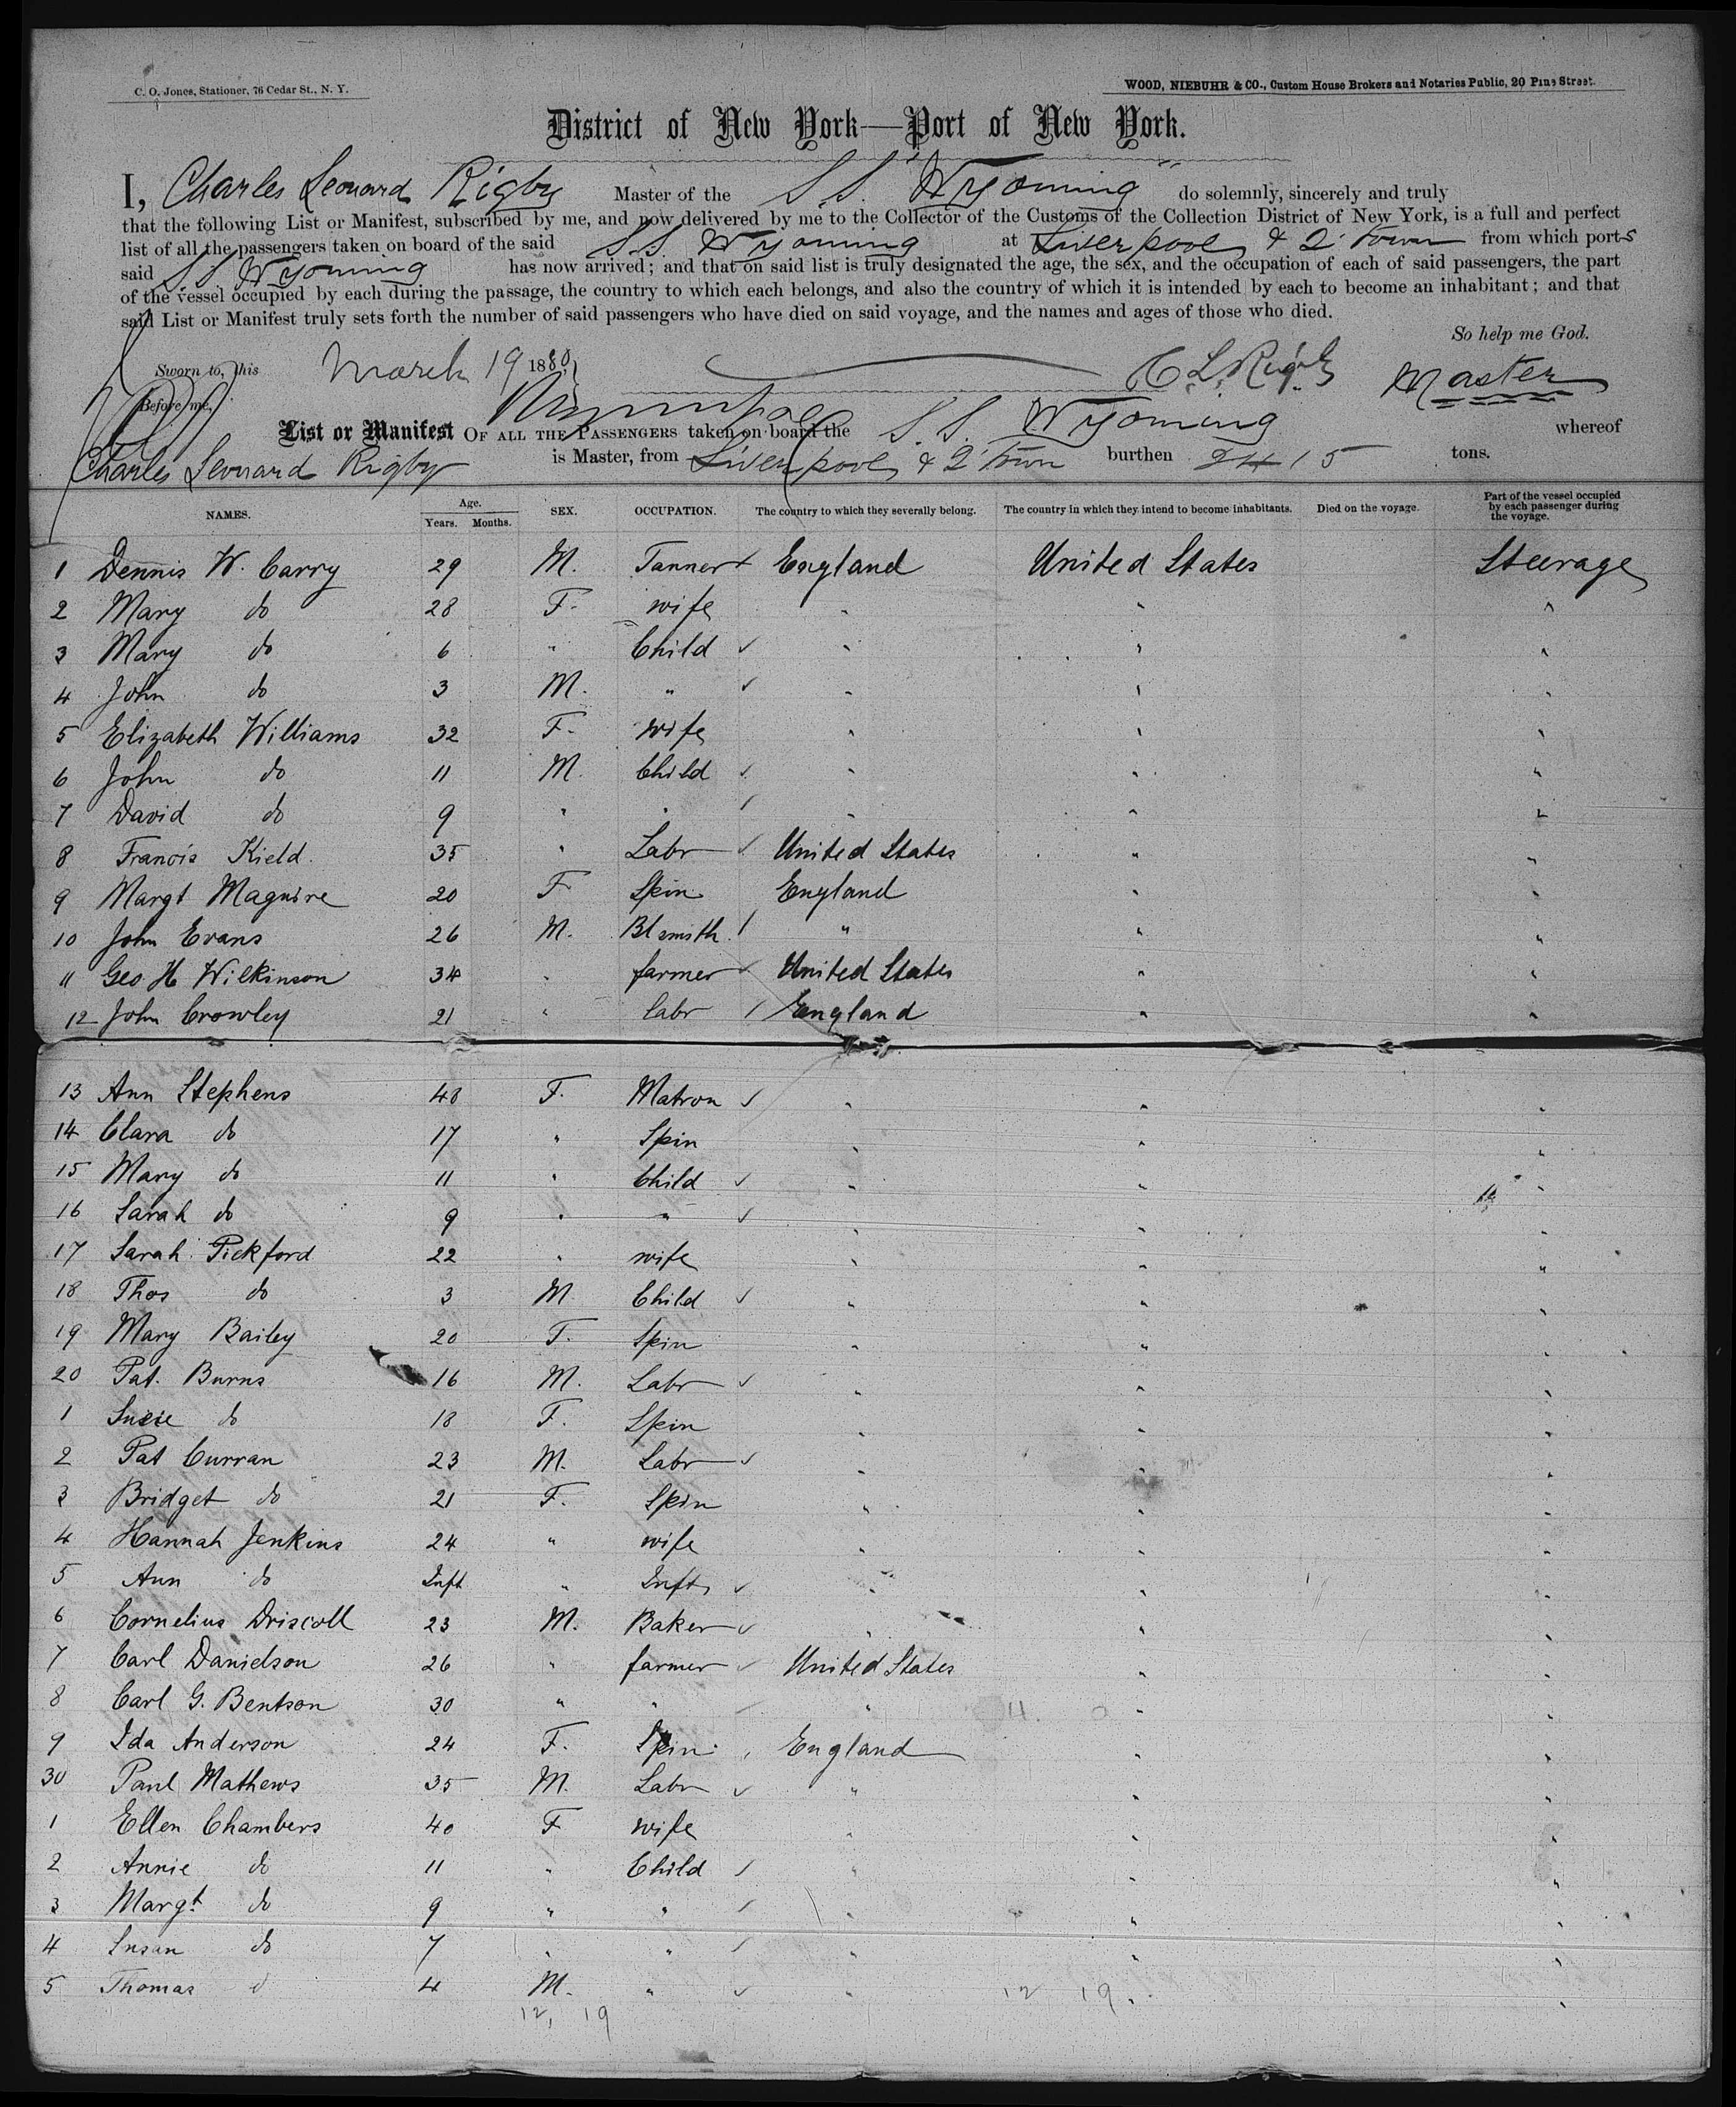 C. O. Jones, Stationer, 76 Cedar St., N. Y.
WOOD, NIEBUHR & CO., Custom House Brokers and Notaries Public, 20 Pine Street.
District of New York—Port of New York.
I, Charles Leonard Rigby Master of the S.S. "Wyoming" do solemnly, sincerely and truly
that the following List or Manifest, subscribed by me, and now delivered by me to the Collector of the Customs of the Collection District of New York, is a full and perfect
list of all the passengers taken on board of the said S.S. Wyoming at Liverpool & Q'Town from which ports
said S.S. Wyoming has now arrived; and that on said list is truly designated the age, the sex, and the occupation of each of said passengers, the part
of the vessel occupied by each during the passage, the country to which each belongs, and also the country of which it is intended by each to become an inhabitant; and that
said List or Manifest truly sets forth the number of said passengers who have died on said voyage, and the names and ages of those who died.
So help me God.
Sworn to, this March 19 1880, C L Rigby Master
Before me,
List or Manifest OF ALL THE PASSENGERS taken on board the S.S. Wyoming whereof
Charles Leonard Rigby is Master, from Liverpool & Q'Town burthen 2415 tons.
NAMES. Age. Years. Months. SEX. OCCUPATION. The country to which they severally belong. The country in which they intend to become inhabitants. Died on the voyage. Part of the vessel occupied by each passenger during the voyage.
1 Dennis W. Carry 29 M. Tanner England United States Steerage
2 Mary do 28 F. wife " " "
3 Mary do 6 " Child " " "
4 John do 3 M. " " " "
5 Elizabeth Williams 32 F. wife " " "
6 John do 11 M. Child " " "
7 David do 9 " " " " "
8 Francis Kield 35 " Labr United States " "
9 Margt Maguire 20 F Spin England " "
10 John Evans 26 M. Blsmith " " "
11 Geo H Wilkinson 34 " farmer United States " "
12 John Crowley 21 " labr England " "
13 Ann Stephens 48 F. Matron " " "
14 Clara do 17 " Spin " " "
15 Mary do 11 " Child " " "
16 Sarah do 9 " " " " "
17 Sarah Pickford 22 " wife " " "
18 Thos do 3 M Child " " "
19 Mary Bailey 20 F. Spin " " "
20 Pat. Burns 16 M. Labr " " "
1 Susie do 18 F. Spin " " "
2 Pat Curran 23 M. Labr " " "
3 Bridget do 21 F. Spin " " "
4 Hannah Jenkins 24 " wife " " "
5 Ann do Inft " Inft " " "
6 Cornelius Driscoll 23 M. Baker " " "
7 Carl Danielson 26 " farmer United States " "
8 Carl G. Bentson 30 " " " " "
9 Ida Anderson 24 F. Spin England " "
30 Paul Mathews 35 M. Labr " " "
1 Ellen Chambers 40 F wife " " "
2 Annie do 11 " Child " " "
3 Margt do 9 " " " " "
4 Susan do 7 " " " " "
5 Thomas d 4 M. " " " "
12, 19 12 19